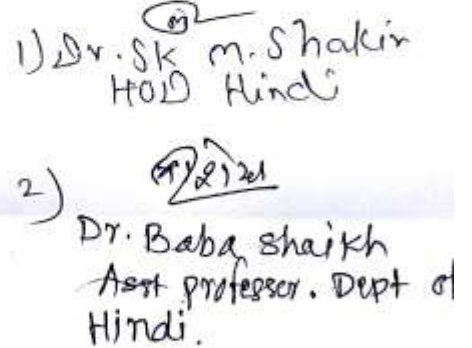 1) Dr. SK M. Shakir
HOD Hindi
2)
Dr. Baba Shaikh
Asst professor. Dept of
Hindi.